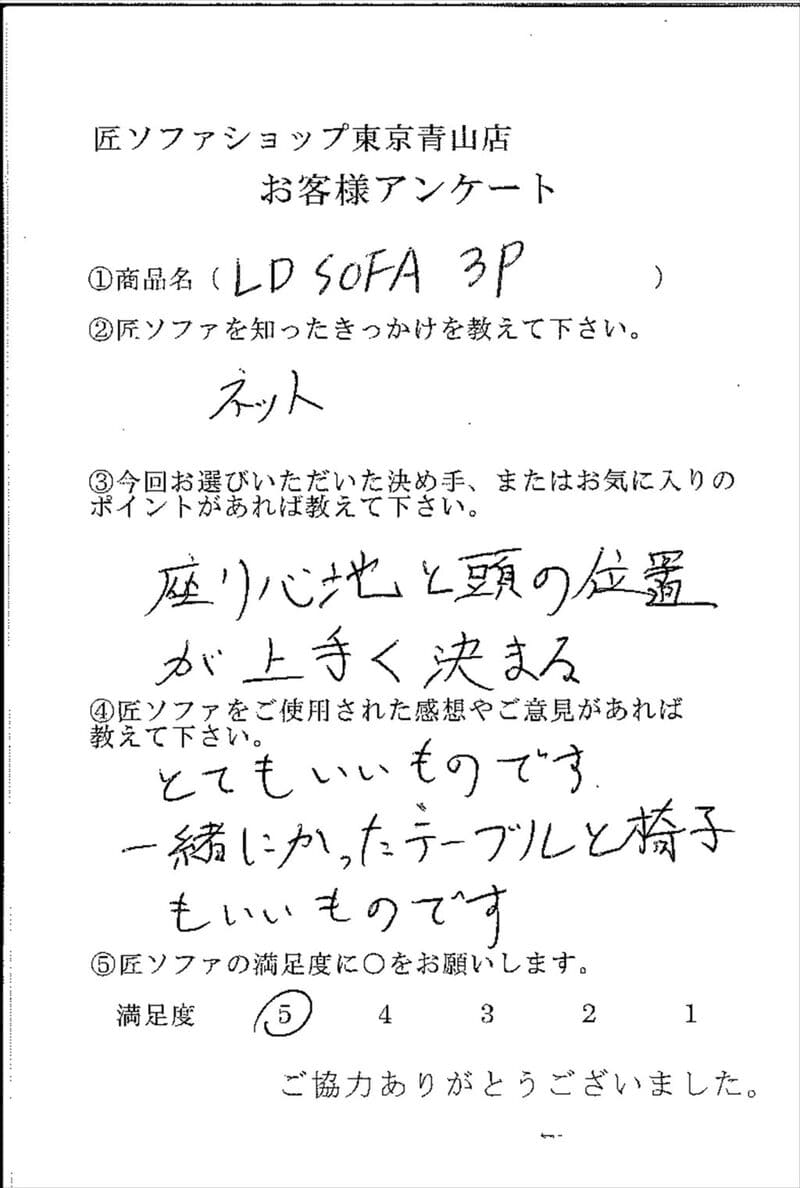 匠ソファショップ東京青山店
お客様アンケート
①商品名（ LD SOFA 3P ）
②匠ソファを知ったきっかけを教えて下さい。
ネット
③今回お選びいただいた決め手、またはお気に入りの
ポイントがあれば教えて下さい。
座り心地と頭の位置
が上手く決まる
④匠ソファをご使用された感想やご意見があれば
教えて下さい。
とてもいいものです
一緒にかったテーブルと椅子
もいいものです
⑤匠ソファの満足度に〇をお願いします。
満足度 5 4 3 2 1
ご協力ありがとうございました。